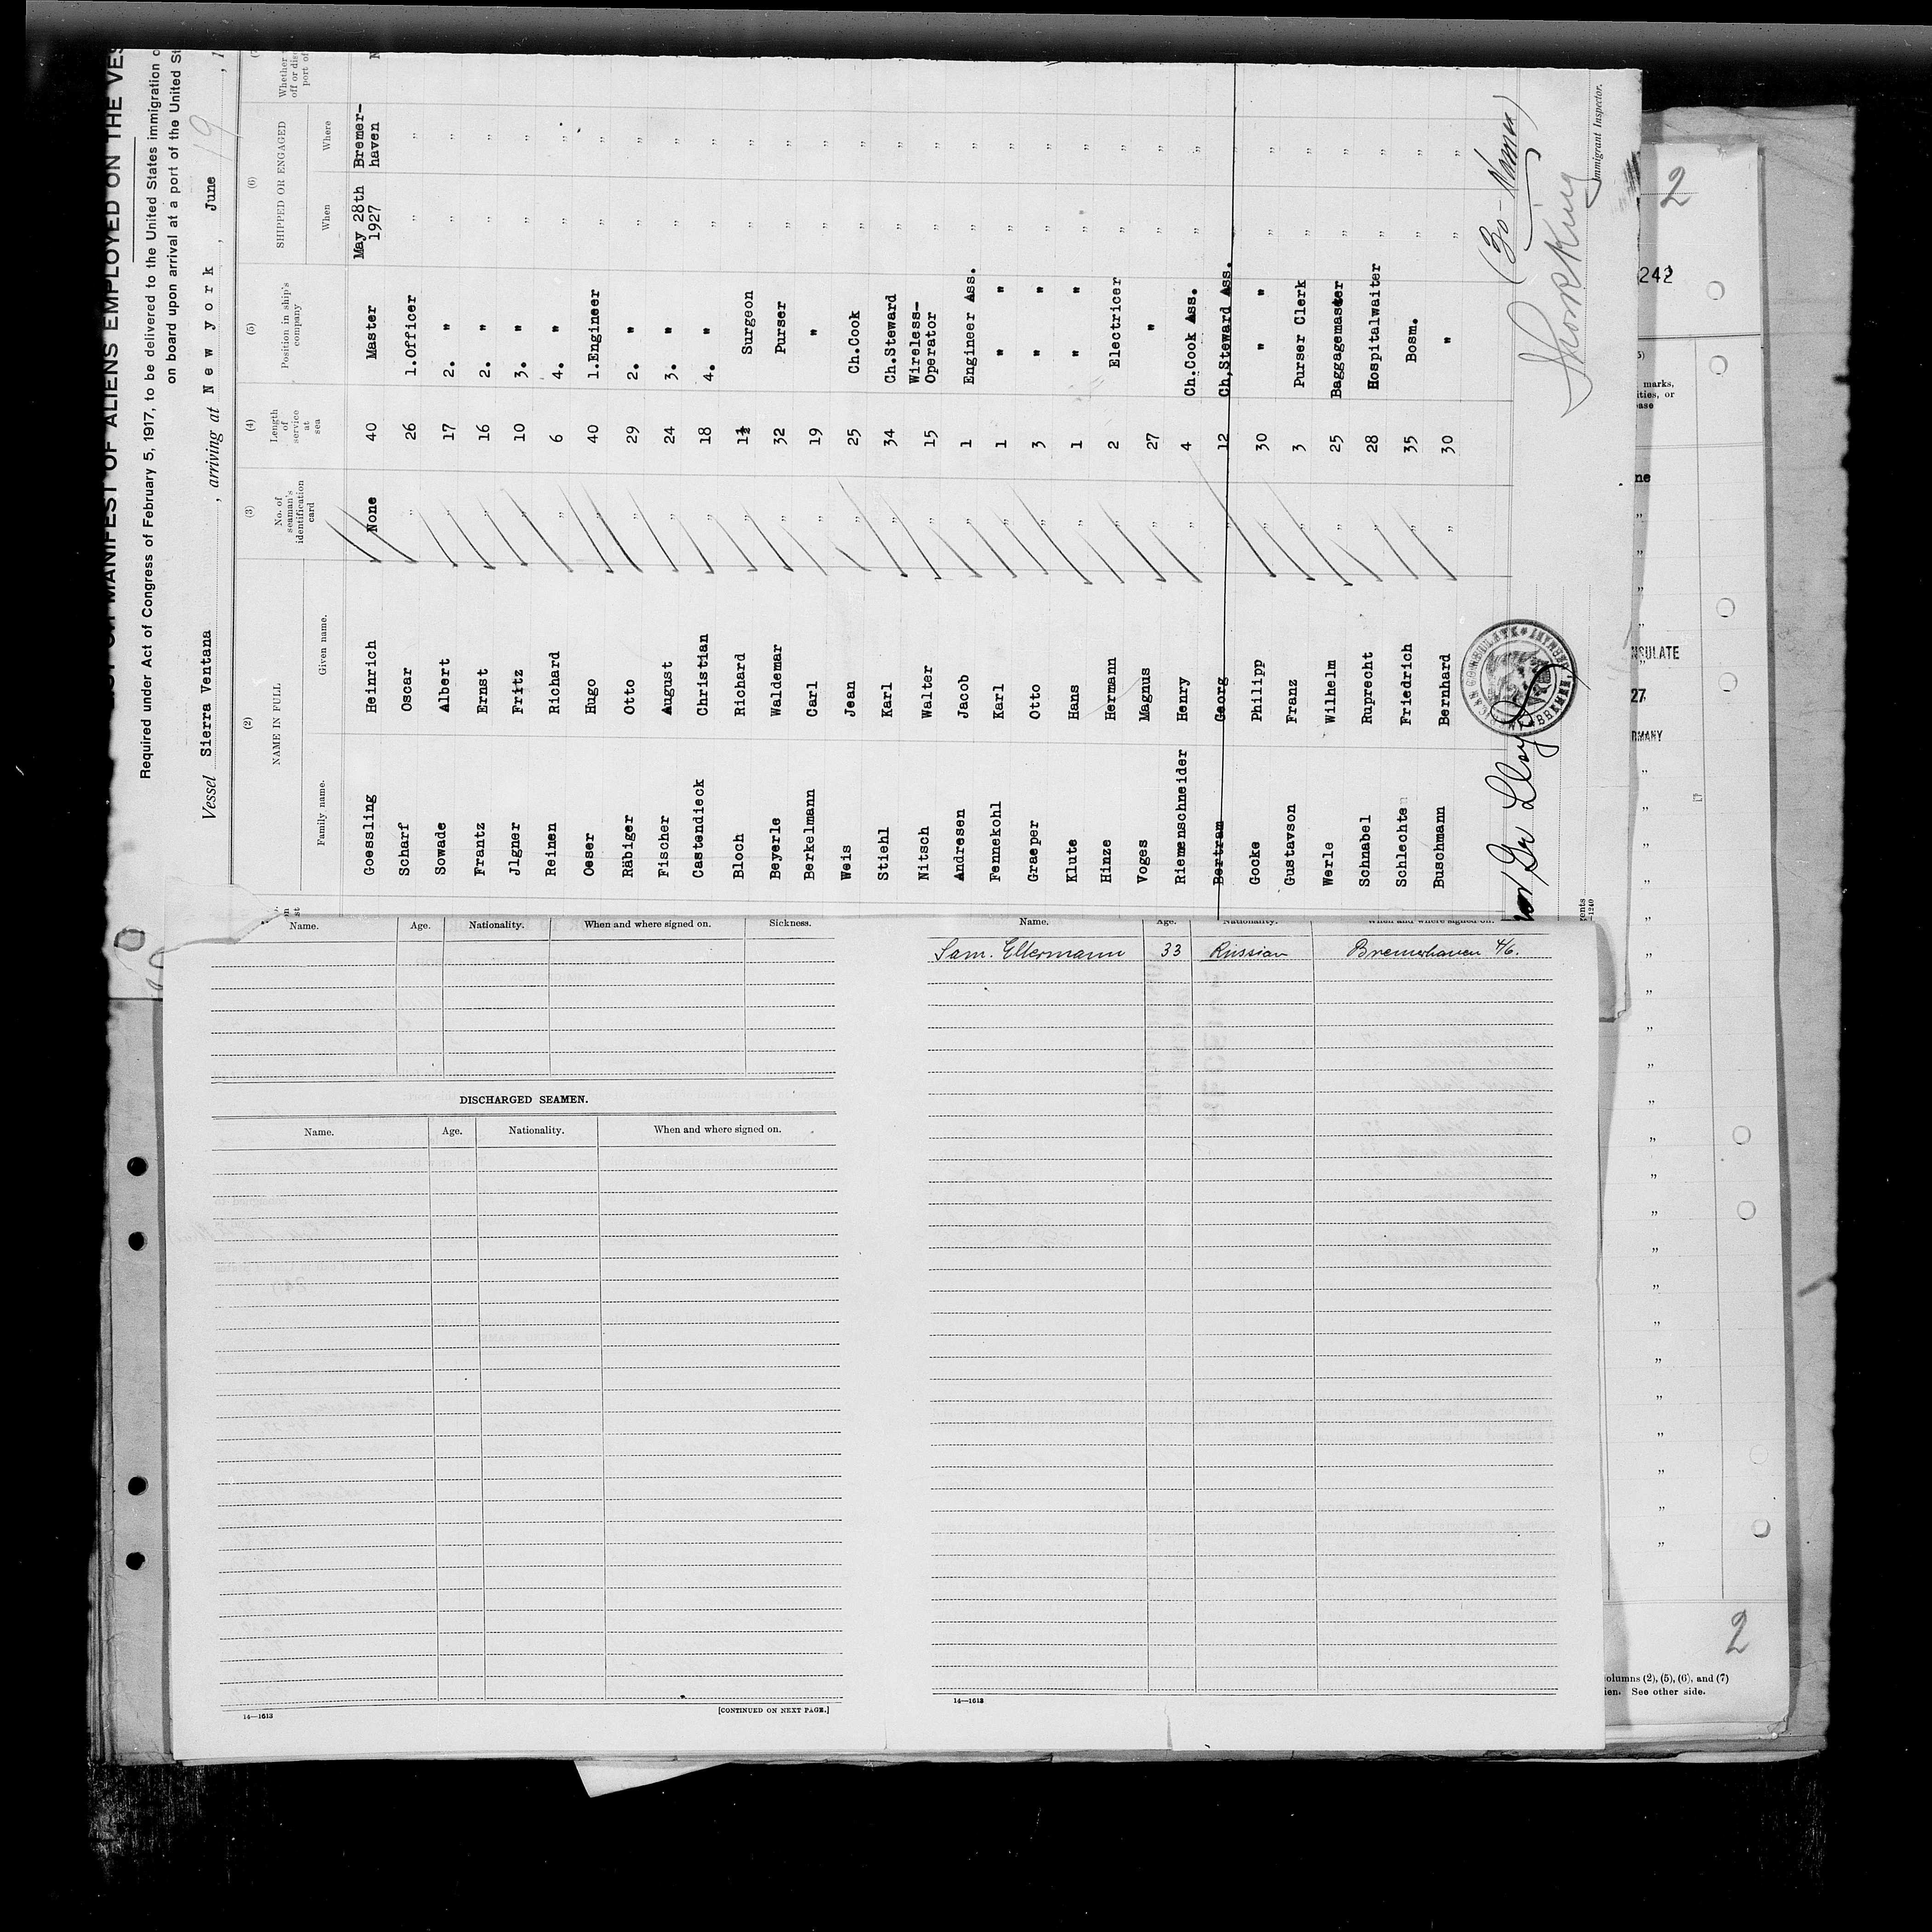 MANIFEST OF ALIENS EMPLOYED ON THE
Required under Act of Congress of February 5, 1917, to be delivered to the United States immigration
on board upon arrival at a port of the United
Vessel Sierra Ventana , arriving at New york , June 19 ,
(2) (3) (4) (5) (6)
NAME IN FULL No. of seaman's identification card Length of service at sea Position in ship's company SHIPPED OR ENGAGED Whether
Family name. Given name. When Where
Goessling Heinrich None 40 Master May 28th 1927 Bremer-haven
Scharf Oscar " 26 1.Officer " "
Sowade Albert " 17 2. " " "
Frantz Ernst " 16 2. " " "
Jlgner Fritz " 10 3. " " "
Reinen Richard " 6 4. " " "
Oeser Hugo " 40 1.Engineer " "
Räbiger Otto " 29 2. " " "
Fischer August " 24 3. " " "
Castendieck Christian " 18 4. " " "
Bloch Richard " 1½ Surgeon " "
Beyerle Waldemar " 32 Purser " "
Berkelmann Carl " 19 " " "
Weis Jean " 25 Ch.Cook " "
Stiehl Karl " 34 Ch.Steward " "
Nitsch Walter " 15 Wireless-Operator " "
Andresen Jacob " 1 Engineer Ass. " "
Fennekohl Karl " 1 " " " "
Graeper Otto " 3 " " " "
Klute Hans " 1 " " " "
Hinze Hermann " 2 Electricer " "
Voges Magnus " 27 " " "
Riemenschneider Henry " 4 Ch.Cook Ass. " "
Bertram Georg " 12 Ch,Steward Ass. " "
Gocke Philipp " 30 " " " "
Gustavson Franz " 3 Purser Clerk " "
Werle Wilhelm " 25 Baggagemaster " "
Schnabel Ruprecht " 28 Hospitalwaiter " "
Schlechten Friedrich " 35 Bosm. " "
Buschmann Bernhard " 30 " " "
Lloyd
Immigrant Inspector.
Name. Age. Nationality. When and where signed on. Sickness.
DISCHARGED SEAMEN.
Name. Age. Nationality. When and where signed on.
14—1613
[CONTINUED ON NEXT PAGE.]
Name. Age. Nationality. When and where signed on.
Sam. Ellermann 33 Russian Bremerhaven 4/6.
14—1613
2
242
marks,
ities, or
27
2
columns (2), (5), (6), and (7)
See other side.